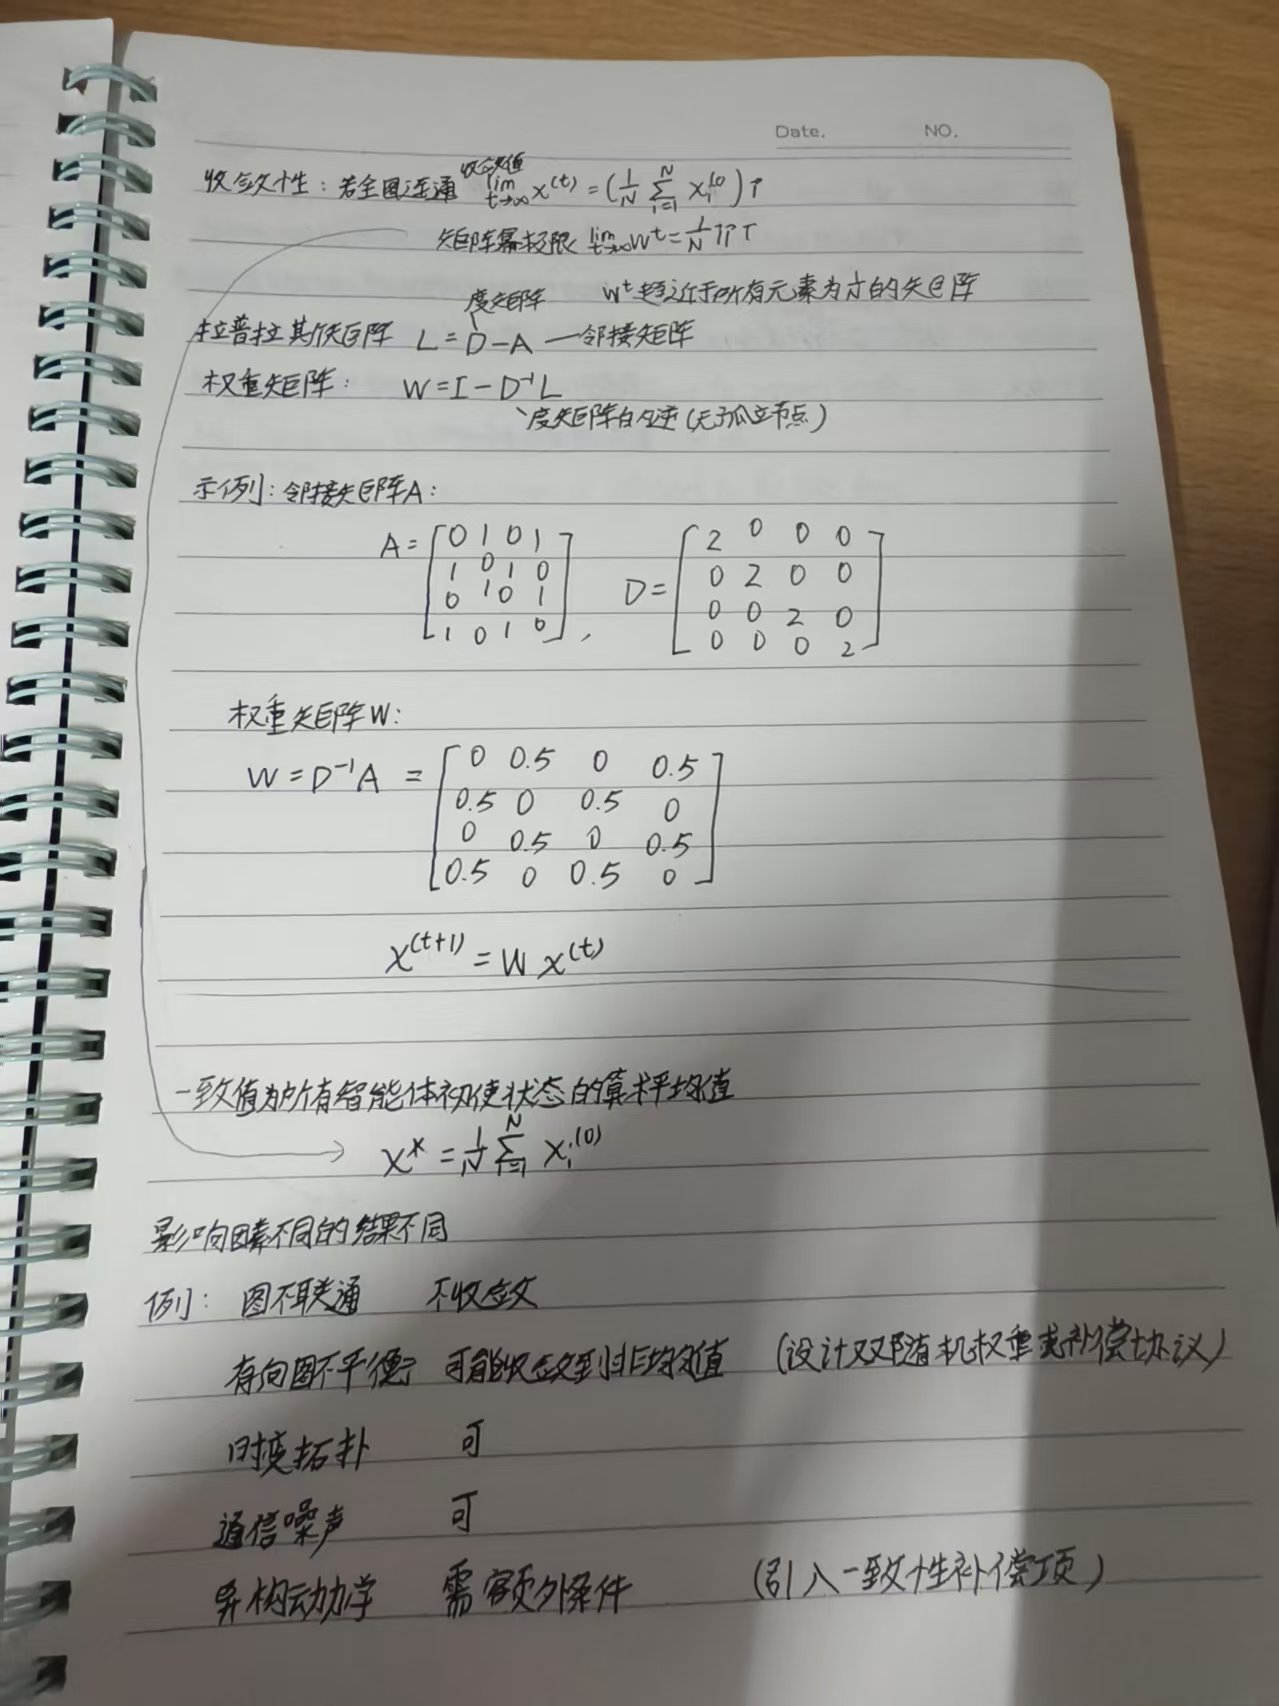 Date. NO.
收敛值
收敛性：若全图连通 lim t→∞ x^(t) = (1/N Σ i=1 N x_i^(0)) 1
矩阵幂极限 lim t→∞ W^t = 1/N 11^T
度矩阵 W^t 趋近于所有元素为 的矩阵
拉普拉其斯矩阵 L = D - A — 邻接矩阵
权重矩阵： W = I - D^-1 L
度矩阵的逆(无孤立节点)
示例：邻接矩阵A：
A = [0 1 0 1 D = [2 0 0 0
1 0 1 0 0 2 0 0
0 1 0 1 0 0 2 0
1 0 1 0], 0 0 0 2]
权重矩阵W：
W = D^-1 A = [0 0.5 0 0.5
0.5 0 0.5 0
0 0.5 0 0.5
0.5 0 0.5 0]
X^(t+1) = W X^(t)
一致值为所有智能体初使状态的算术平均值
X* = 1/N Σ i=1 N X_i^(0)
影响因素不同的结果不同
例： 图不联通 不收敛
有向图不平衡 可能收敛到非均值 (设计双随机权重或补偿协议)
时变拓扑 可
通信噪声 可
异构动力学 需额外条件 (引入一致性补偿项)